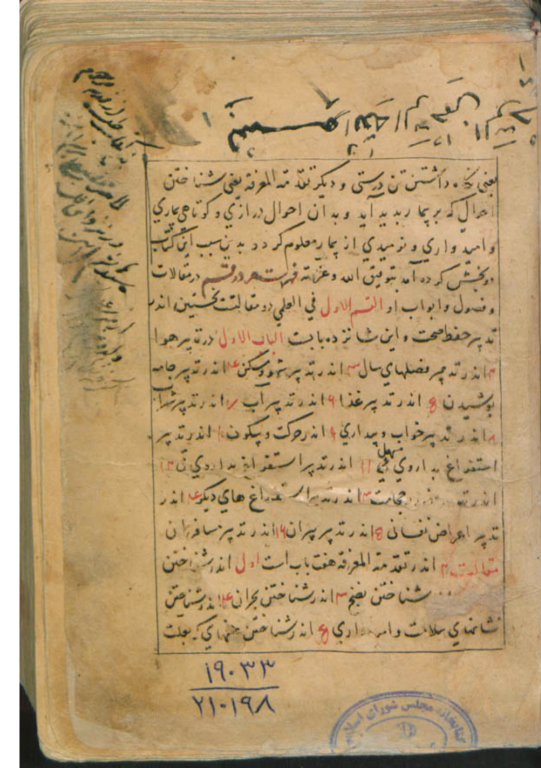 بسم الله الرحمن الرحیم
یعنی نکاه داشتن تن درستی و دیکر تقدمة المعرفه یعنی شناختن
احوالی که بر بیمار پدید آید و بدان احوال درازی و کوتاهی بیماری
و امیدواری و نومیدی از بیمار معلوم کردد بدین سبب این کتاب
دو بخش کرده آمد بتوفیق الله و عزته فهرست هر دو قسم در مقالات
و فصول و ابواب او القسم الاول فی العملی دو مقالتست نخستین اندر
تدبیر حفظ صحت و این شانزده بابست الباب الاول در تدبیر هوا
اندر تدبیر فصلهای سال ۳ اندر تدبیر شهر و مسکن ۴ اندر تدبیر جامه
پوشیدن ۵ اندر تدبیر غذا ۶ اندر تدبیر آب ۷ اندر تدبیر شراب
۸ اندر تدبیر خواب و بیداری ۹ اندر حرکت و سکون ۱۰ اندر تدبیر
استفراغ بداروی مسهل ۱۱ اندر تدبیر استفراغ بداروی قی ۱۲
اندر تدبیر حجامت ۱۳ اندر تدبیر استفراغ های دیکر ۱۴ اندر
تدبیر اعراض نفسانی ۱۵ اندر تدبیر پیران ۱۶ اندر تدبیر مسافران
مقالت ۲ اندر تقدمة المعرفه هفت باب است اول اندر شناختن
شناختن نضج ۳ اندر شناختن بحران ۴ اندر شناختن
نشانهای سلامت و امیدواری ۵ اندر شناختن که بعلت
۱۹۰۳۳
۲۱۰۱۹۸
کتابخانه مجلس شورای اسلامی